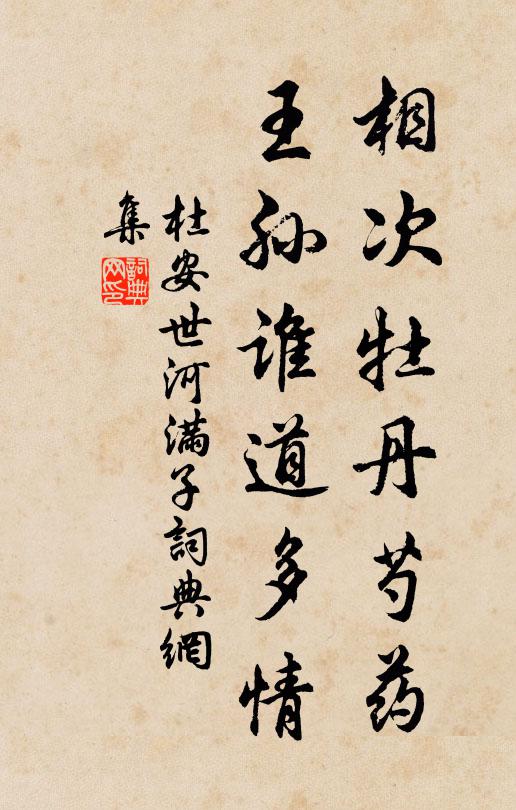 相次牡丹芍药
王孙谁道多情
杜安世河满子詞典網
集
詞典
网印